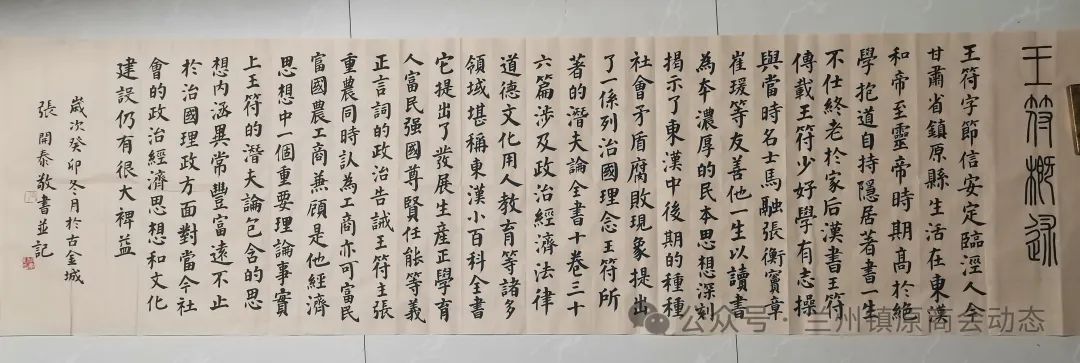 王符概述
王符字節信安定臨涇人今
甘肅省鎮原縣生活在東漢
和帝至靈帝時期高於絕
學抱道自持隱居著書一生
不仕終老於家后漢書王符
傳載王符少好學有志操
與當時名士馬融張衡竇章
崔瑗等友善他一生以讀書
為本濃厚的民本思想深刻
揭示了東漢中後期的種種
社會矛盾腐敗現象提出
了一係列治國理念王符所
著的潛夫論全書十卷三十
六篇涉及政治經濟法律
道德文化用人教育等諸多
領域堪稱東漢小百科全書
它提出了發展生產正學育
人富民强國尊賢任能等義
正言詞的政治告誡王符主張
重農同時認為工商亦可富民
富國農工商兼顧是他經濟
思想中一個重要理論事實
上王符的潛夫論已含的思
想内涵異常豐富遠不止
於治國理政方面對當今社
會的政治經濟思想和文化
建設仍有很大裨益
歲次癸卯冬月於古金城
張開泰敬書並記
公众号·兰州镇原商会动态